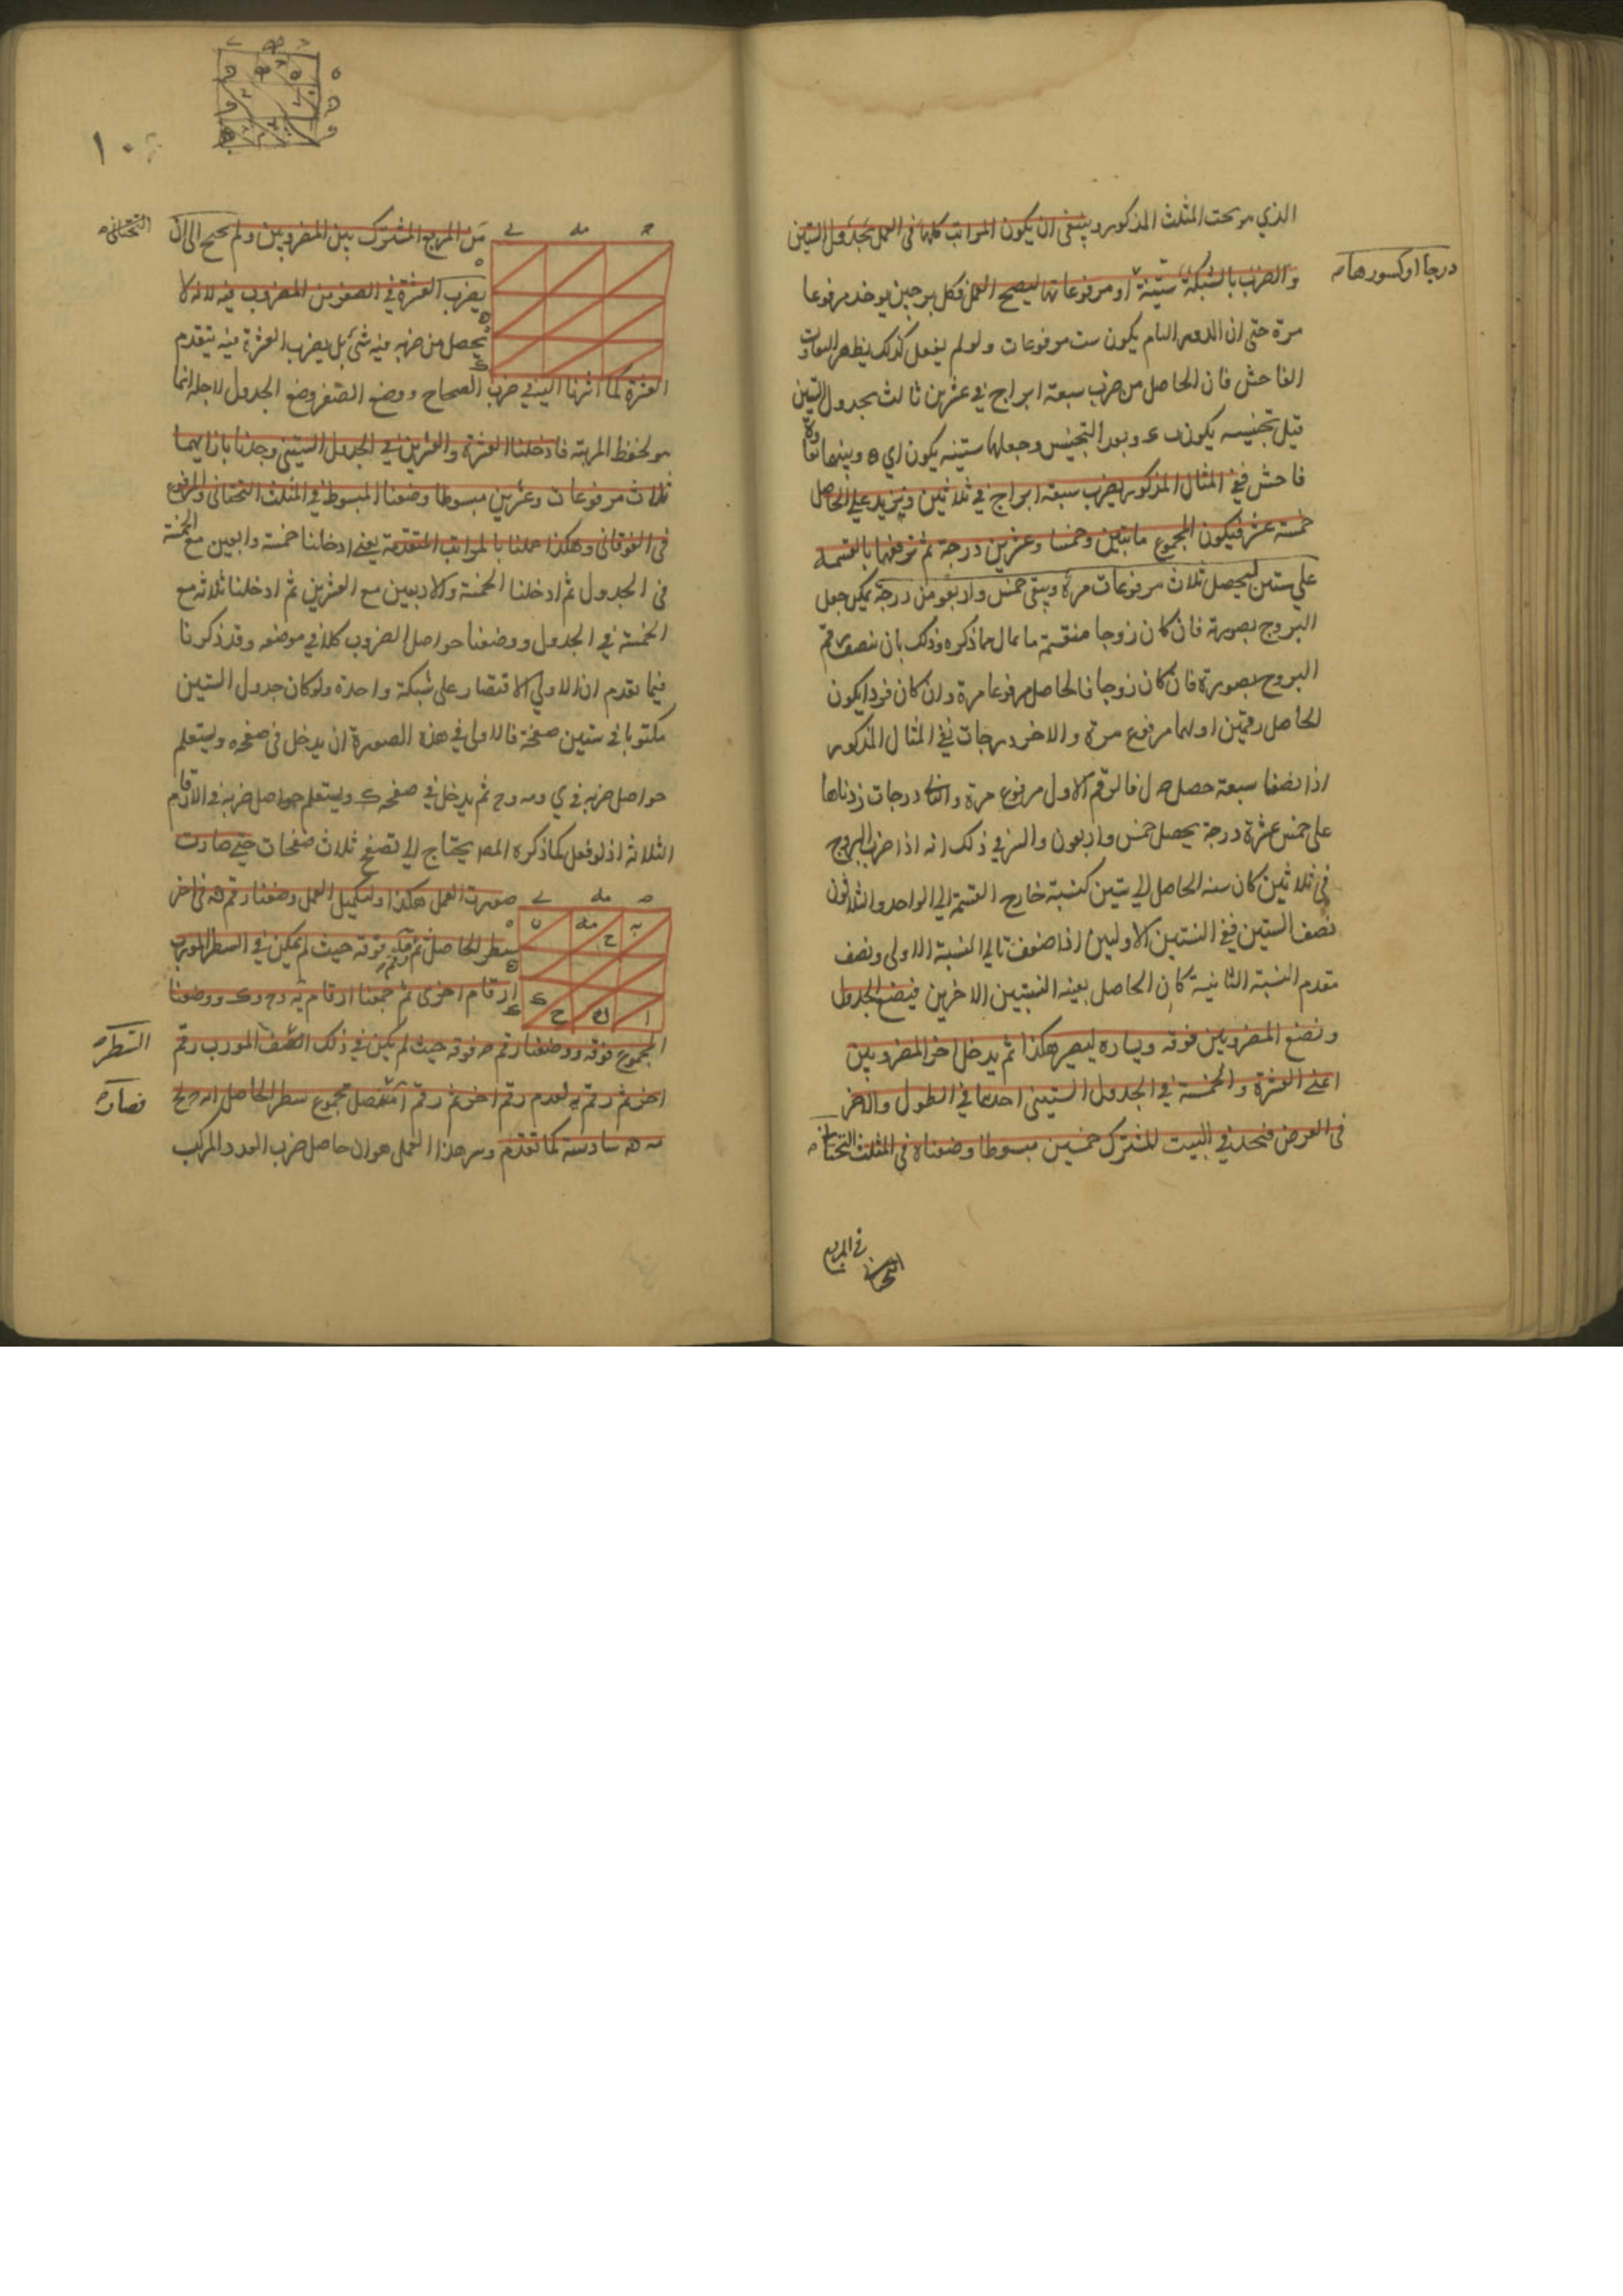 الذي هو تحت المثلث المذكور وينبغى ان يكون المراتب كلها فى العمل بجدول الستين
درجا او كسورها
والضرب بالشبكة ستينية او مرفوعاتها ليصح العمل فكل برجين يوخذ مرفوعا
مرة حتى ان الدور التام يكون ست مرفوعات ولو لم يفعل كذلك يظهر التفاوت
الفاحش فان الحاصل من ضرب سبعة ابراج في عشرين ثالث بجدول الستين
قبل تجنيسه يكون وبعد التجنيس وجعلها ستينية يكون وبينهما تفاوة
فاحش ففي المثال المذكور يضرب سبعة ابراج في ثلاثين ونزيد على الحاصل
خمسة عشر فيكون المجموع مايتين وخمسا وعشرين درجة ثم نرفعها بالقسمة
على ستين ليحصل ثلاث مرفوعات مرة ويبقى خمس واربعون درجة يمكن جعل
البروج بصورة فان كان زوجا منقسمة ما مال ما ذكره وذلك بان ننصف رقم
البروج بصورة فان كان زوجا فالحاصل مرفوعا مرة وان كان فردا يكون
الحاصل رقمين اولهما مرفوع مرة والاخر درجات ففي المثال المذكور
اذا نصفنا سبعة حصل ج ل فالرقم الاول مرفوع مرة والثاني درجات زدناها
على خمس عشرة درجة يحصل خمس واربعون والسر في ذلك انه اذا ضرب البروج
فى ثلاثين كان نسبة الحاصل الي ستين كنسبة خارج القسمة الي الواحد والثلاثون
نصف الستين ففي النسبتين الاوليين اذا ضوعف تالي النسبة الاولى ونصف
مقدم النسبة الثانية كان الحاصل بعينه النسبتين الاخرين فيضع الجدول
ونضع المضروبين فوقه ويساره ليصير هكذا ثم يدخل اخر المضروبين
اعني العشرة والخمسة في الجدول الستيني احدهما في الطول والاخر
فى العرض فنجد في البيت المشترك خمسين مبسوطا وضعناه فى المثلث التحتانى
من المربع المشترك بين المضروبين ولم نحتج الى ان
التحتانى
يضرب العشرة في الصفر من المضروب فيه لانه لا
يحصل من ضربه فيه شئ بل يضرب العشرة فيه يتقدم
العشرة كما اشرنا اليه في ضرب الصحاح ووضع الصفر وضع الجدول لاجله انما
هو لحفظ المرتبة فادخلنا العشرة والعشرين في الجدول الستيني وجدنا بازايهما
ثلاث مرفوعات وعشرين مبسوطا وضعنا المبسوط في المثلث التحتانى والمرفوع
فى الفوقانى وهكذا عملنا بالمراتب المتقدمة يعني ادخلنا خمسة واربعين مع الخمسة
فى الجدول ثم ادخلنا الخمسة والاربعين مع العشرين ثم ادخلنا ثلاثة مع
الخمسة في الجدول ووضعنا حواصل الضروب كلا في موضعه وقد ذكرنا
فيما تقدم ان الاولى الاقتصار على شبكة واحدة ولو كان جدول الستين
مكتوبا في ستين صفحة فالاولى في هذه الصورة ان يدخل فى صفحة ه ويستعلم
حواصل ضربه في ى و مه و ج ثم يدخل في صفحة ك ويستعلم حواصل ضربه في الارقام
الثلاثة اذ لو فعل كما ذكره المصـ يحتاج الي تصفح ثلاث صفحات حتى صارت
صورت العمل هكذا ولتكميل العمل وضعنا رقم ن فى اخر
سطر الحاصل ثم رقم فوقه حيث لم يكن في السطر المورب
ارقام اخرى ثم جمعنا ارقام ووضعنا
المجموع فوقه ووضعنا رقم ه فوقه حيث لم يكن في ذلك الصف المورب رقم
السطر
اخر ثم رقم يه لعدم رقم اخر ثم رقم ا فحصل مجموع سطر الحاصل
فصار
سادسة كما تقدم وسر هذا العمل هو ان حاصل ضرب العدد المركب